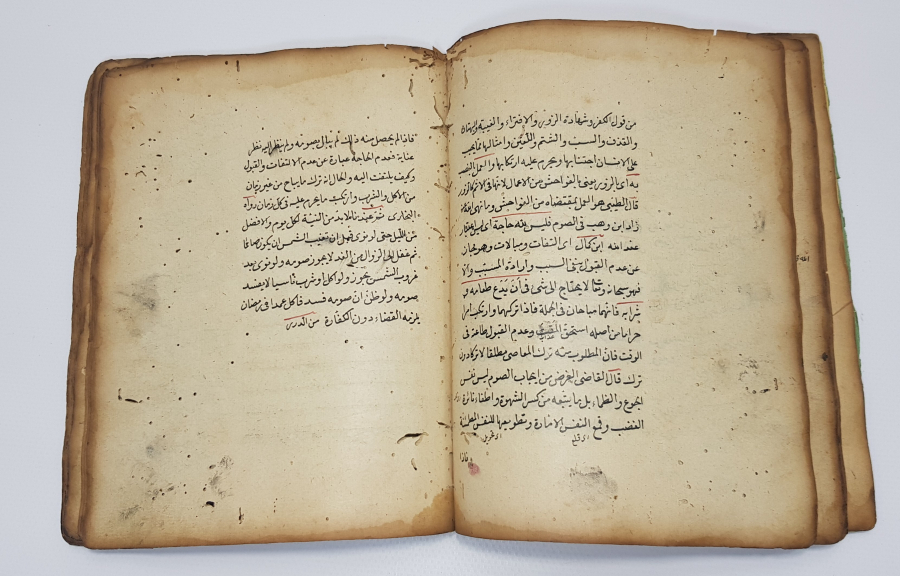 من قول الكفر وشهادة الزور والافتراء والغيبة والبهتان
والقذف والسب والشتم واللعن وامثالها مما يجب
على الانسان اجتنابها ويحرم عليه ارتكابها والعمل
به اى بالزور يعنى بالفواحش من الاعمال لانها فى الاثم كالزور
قال الطيبى هو العمل بمقتضاه من الفواحش وما نهى الله عنه
زاد ابن وهب فى الصوم فليس لله حاجة اى
عند الله ابن كمال اى التفات ومبالات وهو مجاز
عن عدم القبول بنفى السبب وارادة المسبب والا
فهو سبحانه وتعالى لا يحتاج الى شئ فى أن يدع طعامه و
شرابه فانهما مباحان فى الجملة فاذا تركهما وارتكب امرا
حراما من اصله استحق المقت وعدم القبول طاعة فى
الوقت فان المطلوب منه ترك المعاصى مطلقا لا تركا دون
ترك قال القاضى الغرض من ايجاب الصوم ليس نفس
الجوع والظماء بل ما يتبعه من كسر الشهوة واطفاء نائرة
الغضب وقمع النفس الامارة وتطويعها للنفس المطمئنة
اى قلع
فاذا
فاذا لم يحصل منه ذلك لم يبال بصومه ولم ينظر اليه نظر
عناية فعدم الحاجة عبارة عن عدم الالتفات والقبول
وكيف يلتفت اليه والحال انه ترك ما يباح من غير زمان
من الاكل والشرب وارتكب ما يحرم عليه فى كل زمان رواه
البخارى ثم عندنا لابد من النية لكل يوم والافضل
من الليل حتى لو نوى قبل ان تغيب الشمس ان يكون صائما
ثم غفل الى الزوال من الغد لا يجوز صومه ولو نوى بعد
غروب الشمس يجوز ولو اكل او شرب ناسيا لا يفسد
صومه ولو ظن ان صومه فسد فاكل عمدا فى رمضان
يلزمه القضاء دون الكفارة من الدرر